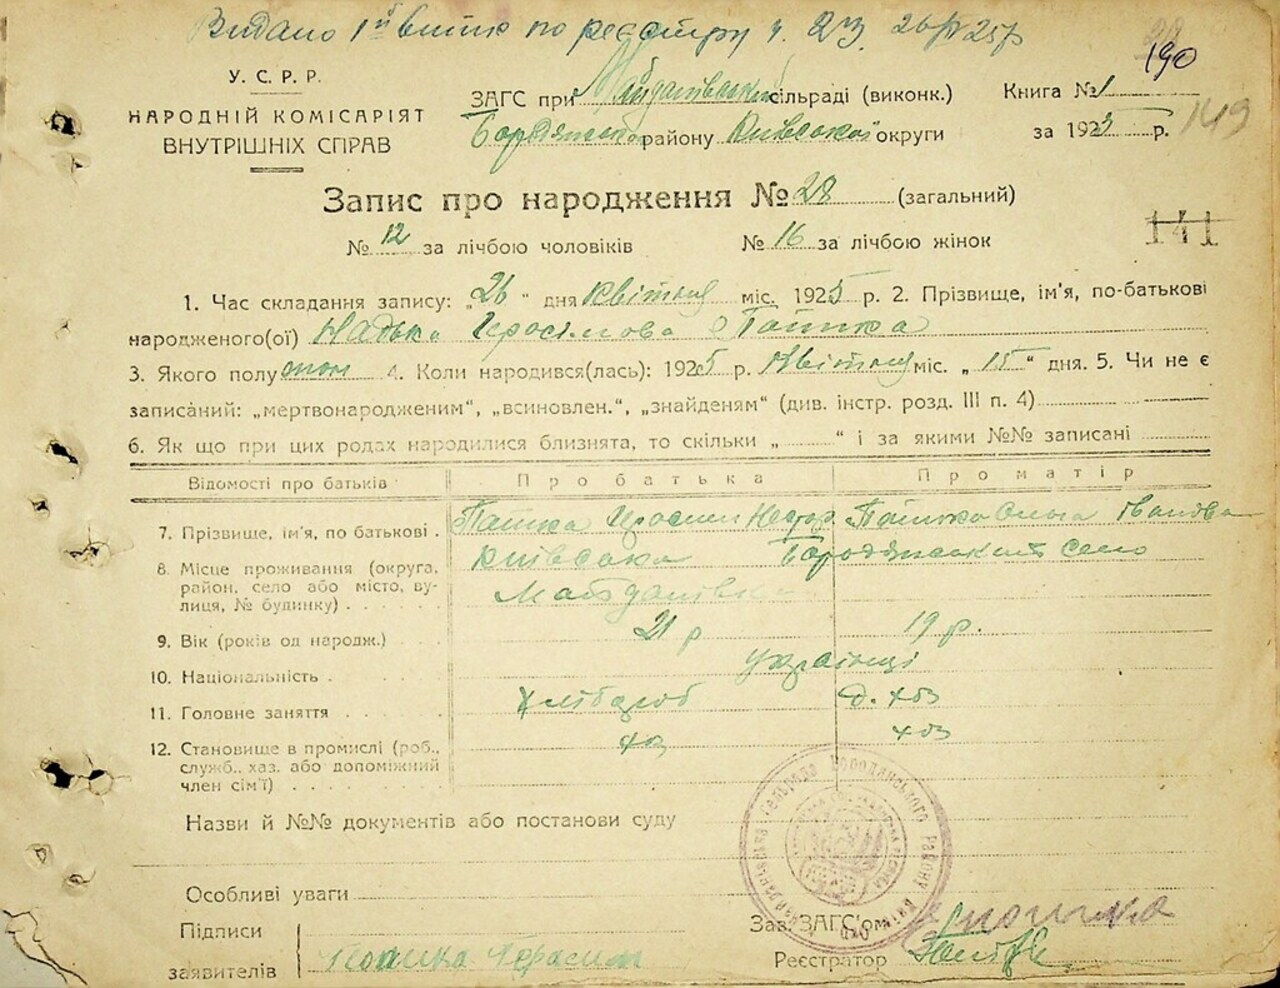 Видано 1й витяг по реєстру ч. 23. 26/IV 25 р
190
У. С. Р. Р.
НАРОДНІЙ КОМІСАРІЯТ
ВНУТРІШНІХ СПРАВ
ЗАГС при Майданівській сільраді (виконк.) Книга № 1
Бородянсько району Київської округи за 1925 р. 149
Запис про народження № 28 (загальний)
№ 12 за лічбою чоловіків № 16 за лічбою жінок
141
1. Час складання запису: „26" дня Квітня міс. 1925 р. 2. Прізвище, ім'я, по-батькові
народженого(ої) Надька Геросімова Пашка
3. Якого полу 4. Коли народився(лась): 1925 р. Квітня міс. „15" дня. 5. Чи не є
записаний: „мертвонародженим", „всиновлен.", „знайденям" (див. інстр. розд. III п. 4)
6. Як що при цих родах народилися близнята, то скільки „ " і за якими №№ записані
Відомості про батьків Про батька Про матір
7. Прізвище, ім'я, по батькові . Пашка Геросим Нестор Пашка Ольга Іванова
8. Місце проживання (округа, Київська Бородянський село
район, село або місто, ву-
лиця, № будинку) Майданівка
9. Вік (років од народж.) 21 р 19 р.
10. Національність українці
11. Головне заняття Хлібороб д. хоз
12. Становище в промислі (роб., хоз хоз
служб., хаз. або допоміжний
член сім'ї)
Назви й №№ документів або постанови суду
Особливі уваги
Підписи Зав. ЗАГС'ом
заявителів Пашка Герасим Реєстратор